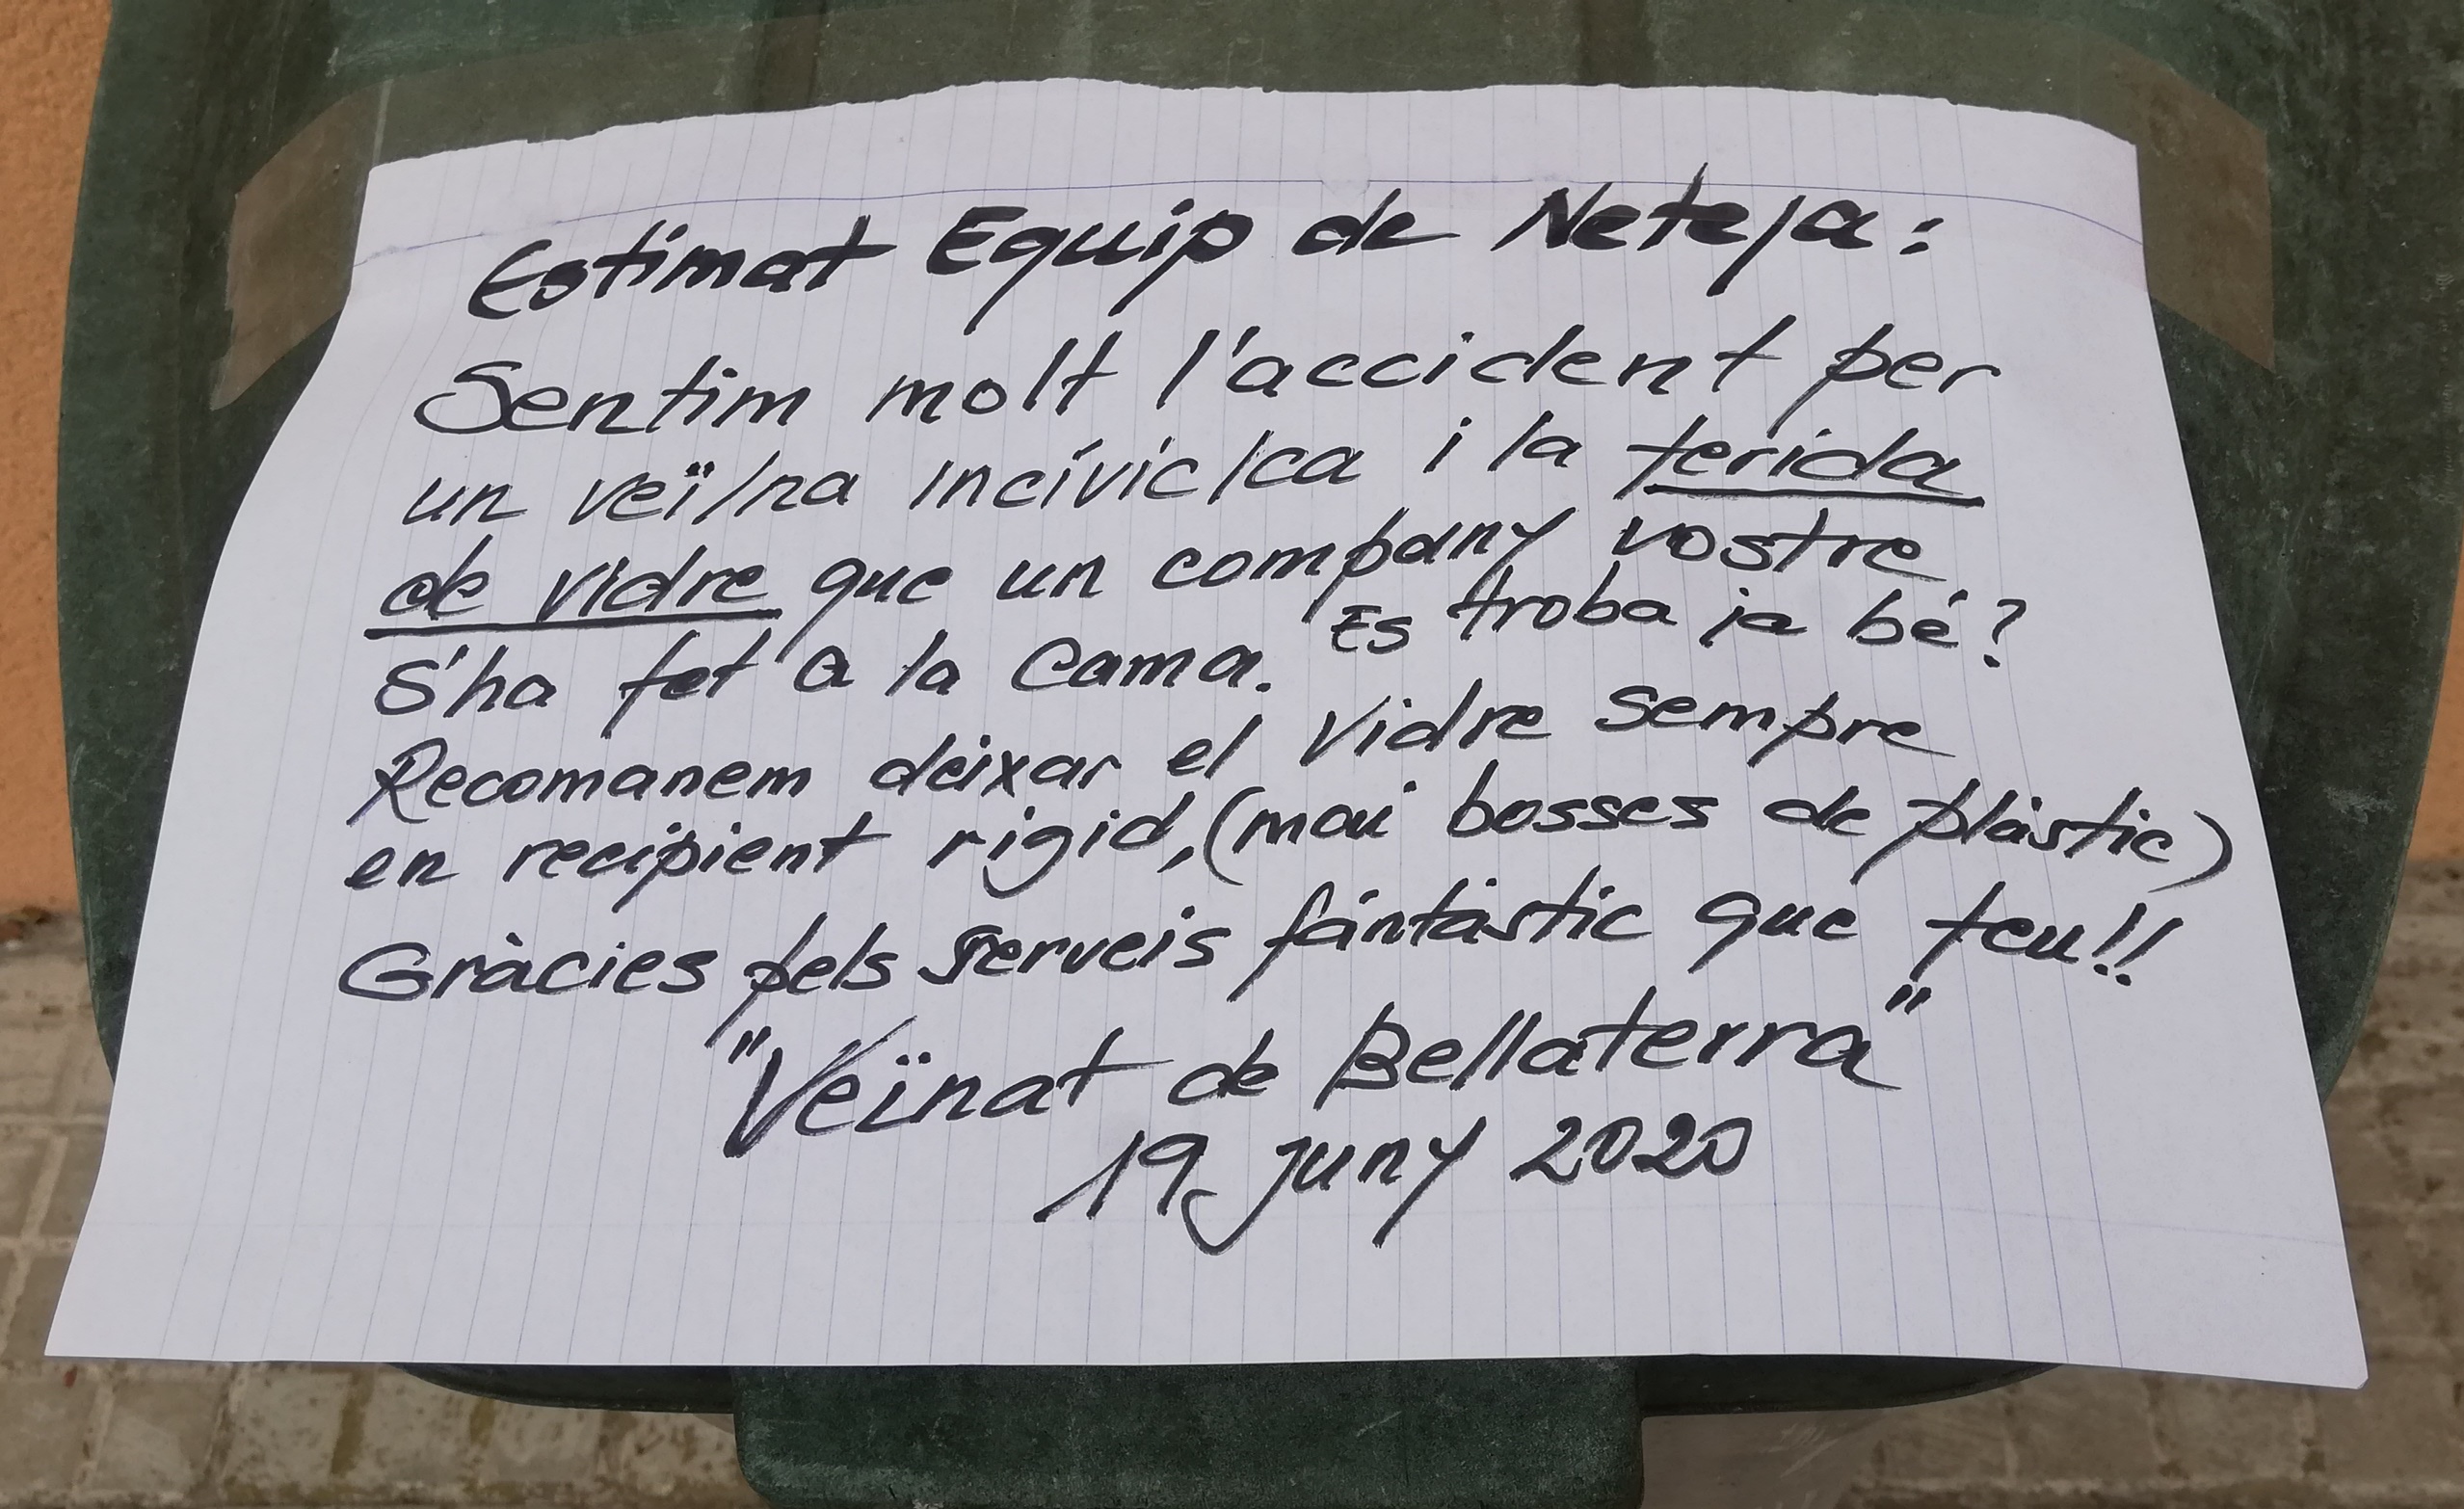 Estimat Equip de Neteja:
Sentim molt l'accident per
un veï/na incívic/ca i la ferida
de vidre que un company vostre
s'ha fet a la cama. Es troba ja bé?
Recomanem deixar el vidre sempre
en recipient rigid, (mai bosses de plàstic)
Gràcies pels serveis fantàstic que feu!!
"Veïnat de Bellaterra"
19 juny 2020